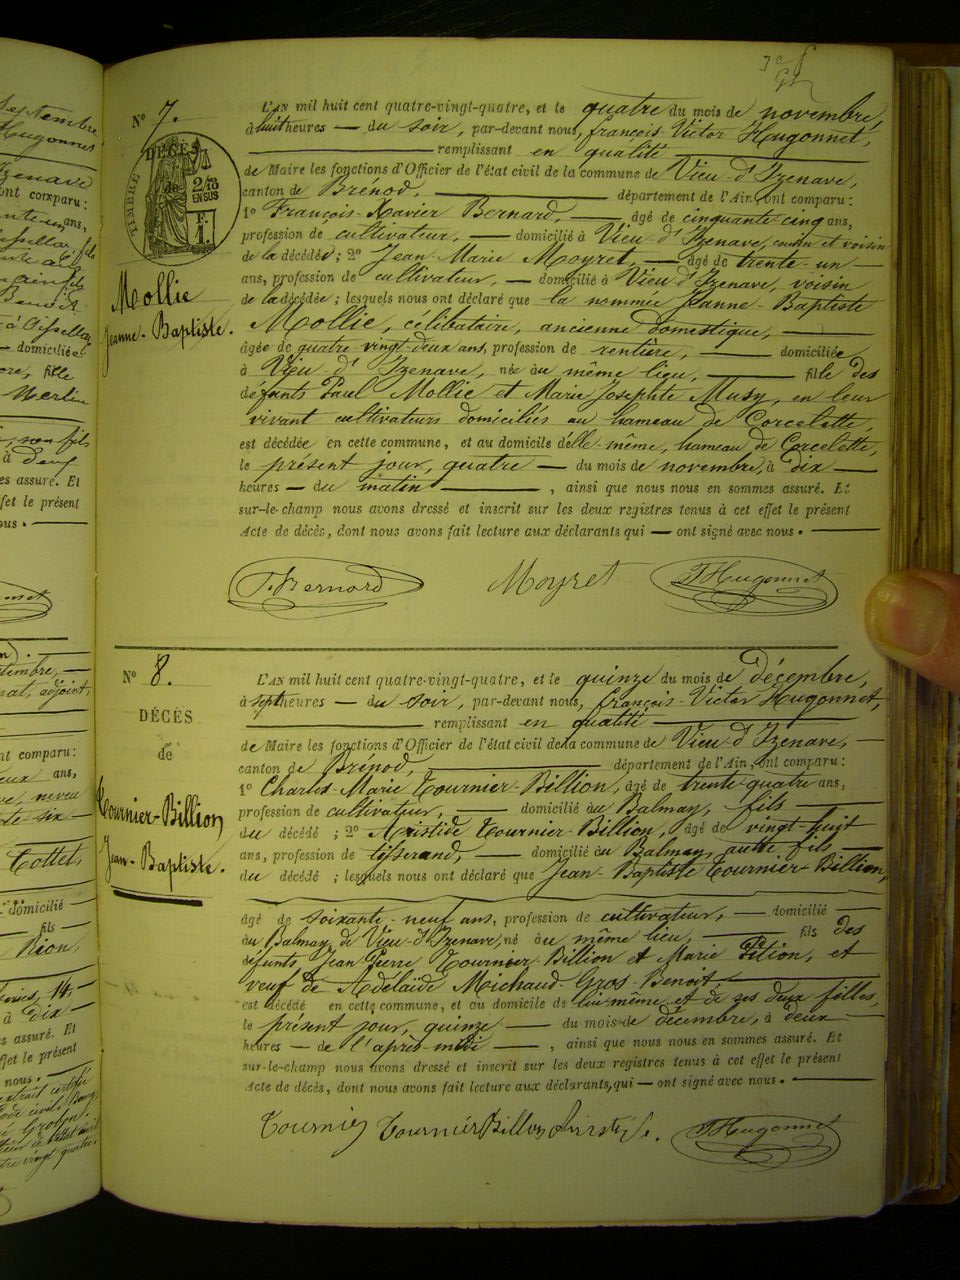 3e f
N° 7.
DÉCÈS
de
TIMBRE
2/10
EN SUS
F.
1.
Mollie
Jeanne-Baptiste.
L'AN mil huit cent quatre-vingt-quatre, et le quatre du mois de novembre,
à huit heures — du soir, par-devant nous, françois-Victor Hugonnet,
remplissant en qualité
de Maire les fonctions d'Officier de l'état civil de la commune de Vieu-d'Izenave,
canton de Brénod, département de l'Ain, ont comparu :
1° François-Xavier Bernard, — âgé de cinquante cinq ans,
profession de cultivateur, — domicilié à Vieu-d'Izenave, cousin et voisin
de la décédée ; 2° Jean-Marie Moyret, — âgé de trente-un —
ans, profession de cultivateur, — domicilié à Vieu-d'Izenave, voisin
de la décédée ; lesquels nous ont déclaré que la nommée Jeanne-Baptiste
Mollie, célibataire, ancienne domestique, —
âgée de quatre-vingt-deux ans, profession de rentière, — domiciliée
à Vieu-d'Izenave, née au même lieu, — fille des
défunts Paul Mollie et Marie Josephte Musy, en leur
vivant cultivateurs domiciliés au hameau de Corcelette,
est décédée en cette commune, et au domicile d'elle-même, hameau de Corcelette,
le présent jour, quatre — du mois de novembre, à dix —
heures — du matin — , ainsi que nous nous en sommes assuré. Et
sur-le-champ nous avons dressé et inscrit sur les deux registres tenus à cet effet le présent
Acte de décès, dont nous avons fait lecture aux déclarants qui — ont signé avec nous. —
Bernard Moyret Hugonnet
N° 8.
DÉCÈS
de
Tournier-Billion
Jean-Baptiste.
L'AN mil huit cent quatre-vingt-quatre, et le quinze du mois de décembre,
à sept heures — du soir, par-devant nous, françois-Victor Hugonnet,
remplissant en qualité
de Maire les fonctions d'Officier de l'état civil de la commune de Vieu-d'Izenave, —
canton de Brénod, département de l'Ain, ont comparu :
1° Charles-Marie Tournier-Billion, âgé de trente-quatre ans,
profession de cultivateur, — domicilié au Balmay, fils —
du décédé ; 2° Aristide Tournier-Billion, âgé de vingt-huit
ans, profession de tisserand, — domicilié au Balmay, autre fils —
du décédé ; lesquels nous ont déclaré que Jean-Baptiste Tournier-Billion,
âgé de soixante-neuf ans, profession de cultivateur, — domicilié
au Balmay de Vieu-d'Izenave, né au même lieu, — fils des
défunts Jean Pierre Tournier-Billion et Marie Pition, et
veuf de Adélaïde Michaud-Gros-Benoit —
est décédé en cette commune, et au domicile de lui-même et de ses deux filles,
le présent jour, quinze — du mois de décembre, à deux —
heures — de l'après-midi — , ainsi que nous nous en sommes assuré. Et
sur-le-champ nous avons dressé et inscrit sur les deux registres tenus à cet effet le présent
Acte de décès, dont nous avons fait lecture aux déclarants, qui — ont signé avec nous. —
Tournier Tournier Billon Hugonnet